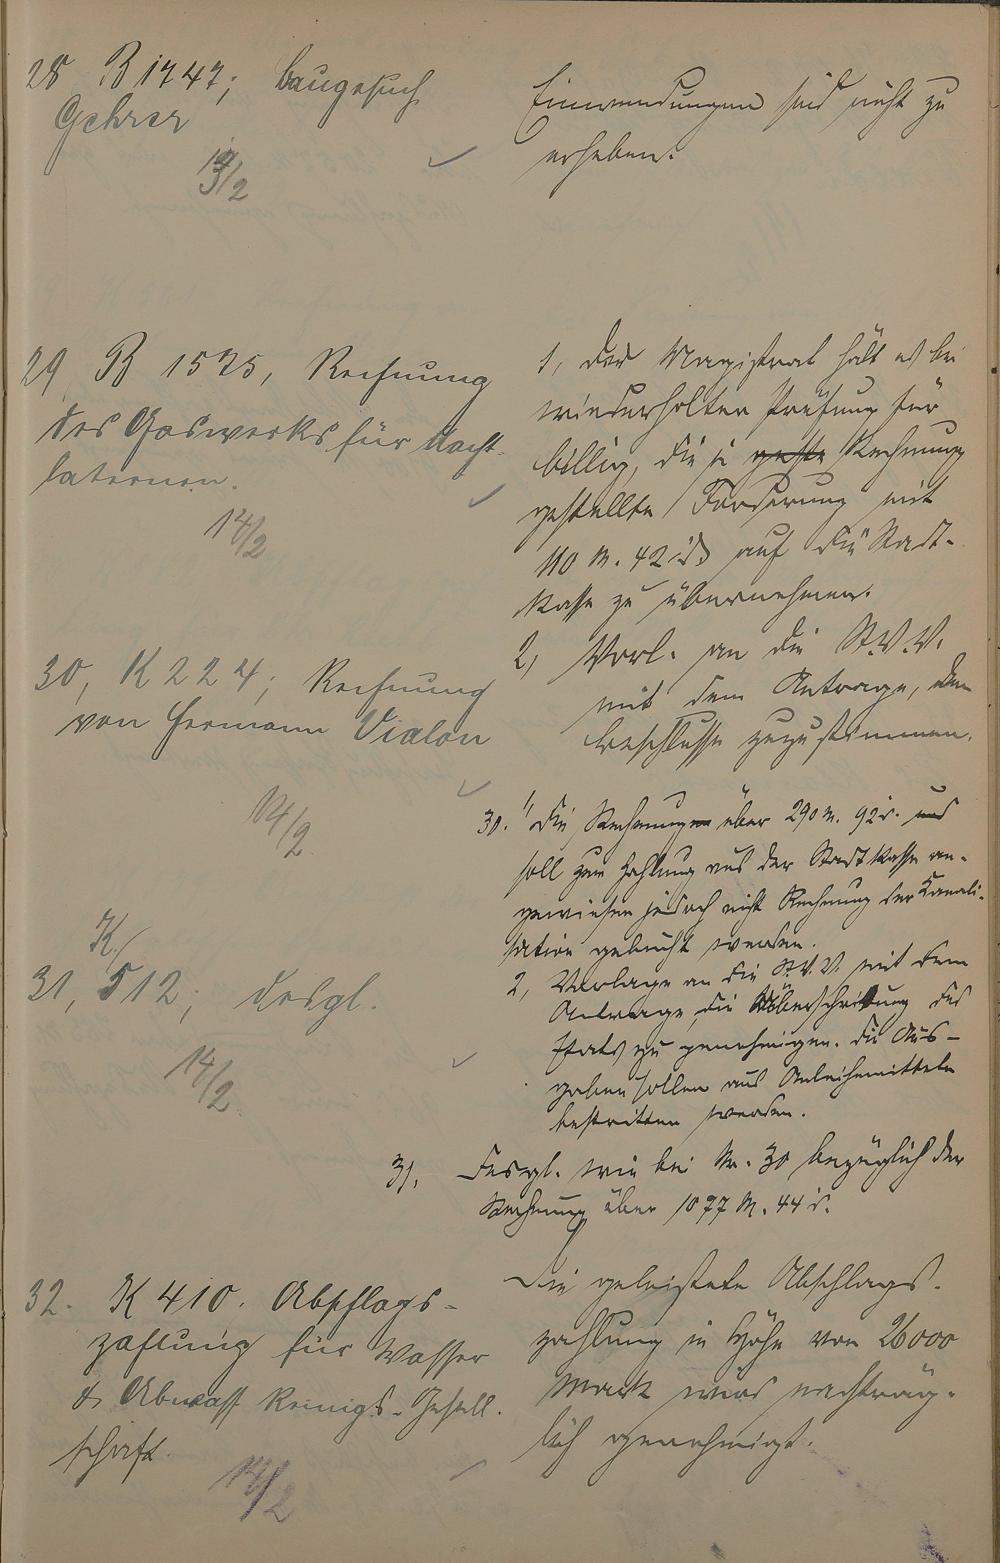 28 B 1747; Baugesuch
Gehrer
14/2
Einwendungen sind nicht zu
erheben.
29, B 1575, Rechnung
des Gaswerks für Nacht-
laternen.
14/2
1, Der Magistrat hält es bei
wiederholter Prüfung für
billig, die in Rechnung
gestellte Forderung mit
110 M. 42 auf die Stadt-
kasse zu übernehmen.
2, Vorl. an die St.V.V.
mit dem Antrage, dem
Beschlusse zuzustimmen.
30, K 224; Rechnung
von Hermann Vialon
14/2
30. 1, Die Rechnung über 290 M. 92
soll zur Zahlung aus der Stadtkasse an-
gewiesen jedoch nicht Rechnung der Kanali-
sation gebucht werden.
2, Vorlage an die St.V.V. mit dem
Antrage, die Überschreitung des
Etats zu genehmigen. Die Aus-
gaben sollen aus Anleihemitteln
bestritten werden.
K/
31, 512; desgl.
14/2
31, Desgl. wie bei Nr. 30 bezüglich der
Rechnung über 1077 M. 44
32. K 410. Abschlags-
zahlung für Wasser
& Abwass Reinigs-Gesell-
schaft.
14/2
Die geleistete Abschlags-
zahlung in Höhe von 26000
Mark wird nachträg-
lich genehmigt.